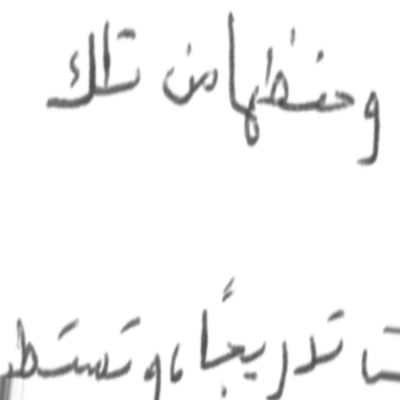 وحفظها من تلك
تدريجًا، و تستطـ